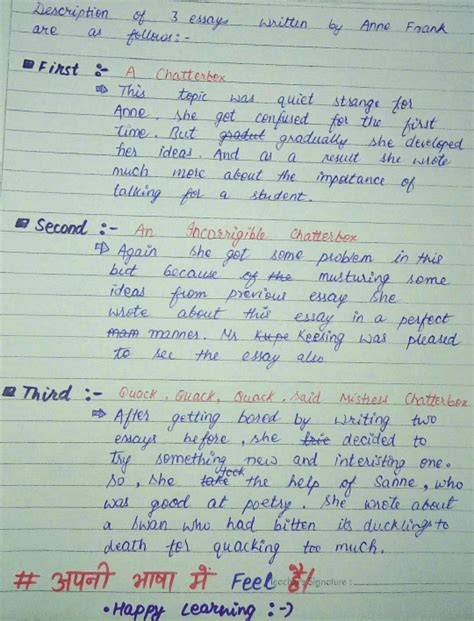 Description of 3 essays written by Anne Frank
are as follows:-
First :- A Chatterbox
⇒ This topic was quiet strange for
Anne. She got confused for the first
time. But gradual gradually she developed
her ideas. And as a result she wrote
much more about the impotance of
talking for a student.
Second :- An Incorrigible Chatterbox
⇒ Again she got some problem in this
but because of the nusturing some
ideas from previous essay she
wrote about this essay in a perfect
mam manner. Mr Kupe Keesing was pleased
to see the essay also
Third :- Quack, Quack, Quack, Said Mistress Chatterbox
⇒ After getting bored by writing two
essays before, she decided to
try something new and interisting one.
So, she take took the help of Sanne, who
was good at poetry. She wrote about
a swan who had bitten its ducklings to
death for quacking too much.
# अपनी भाषा में Feel है/ Teacher's Signature :
• Happy Learning :-)